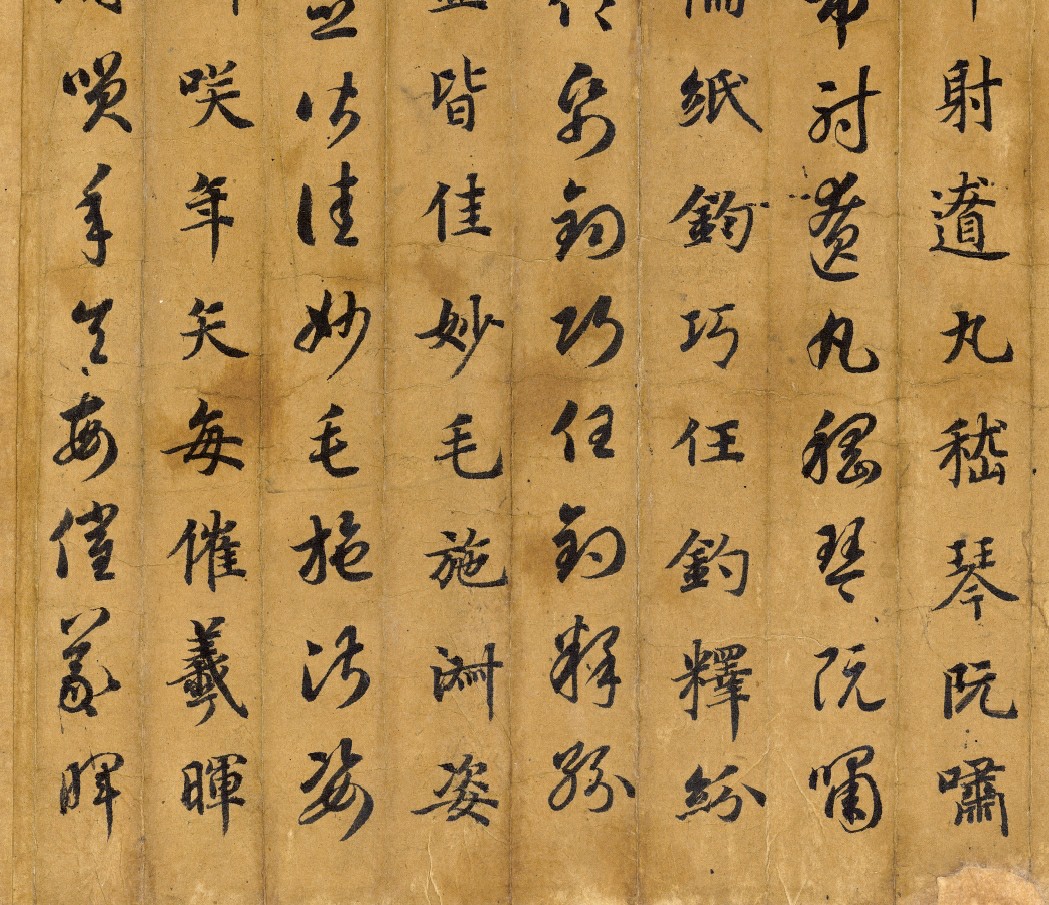 射遼丸嵇琴阮嘯
布射遼丸嵇琴阮嘯
倫紙鈞巧任釣釋紛
帋鈞巧任釣釋紛
皆佳妙毛施淑姿
並皆佳妙毛施淑姿
咲年矢每催羲暉
咲年矢每催羲暉